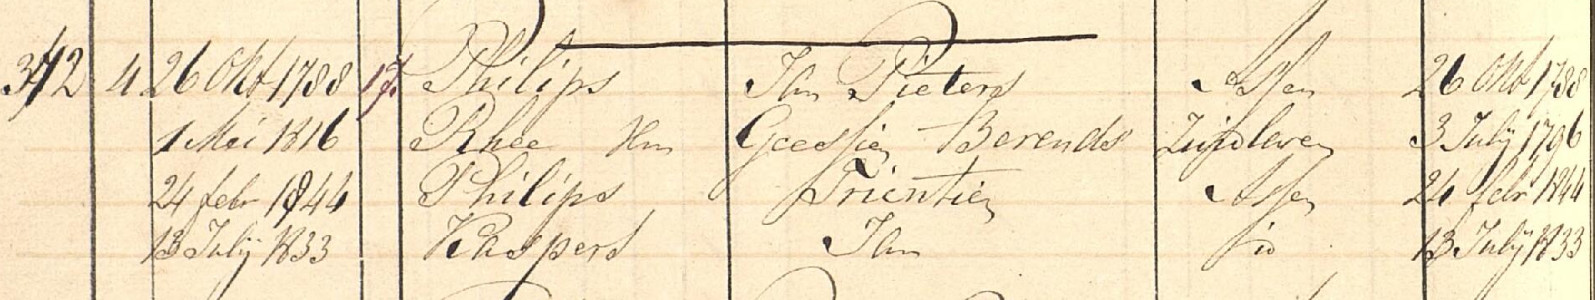 372 4 26 Okt 1788 17. Philips Jan Pieters Assen 26 Okt 1788
1 Mei 1816 Rhee Hm Geessien Berends Zuidlaren 3 July 1796
24 febr 1844 Philips Trientien Assen 24 febr 1844
13 July 1833 Kaspers Jan 13 July 1833